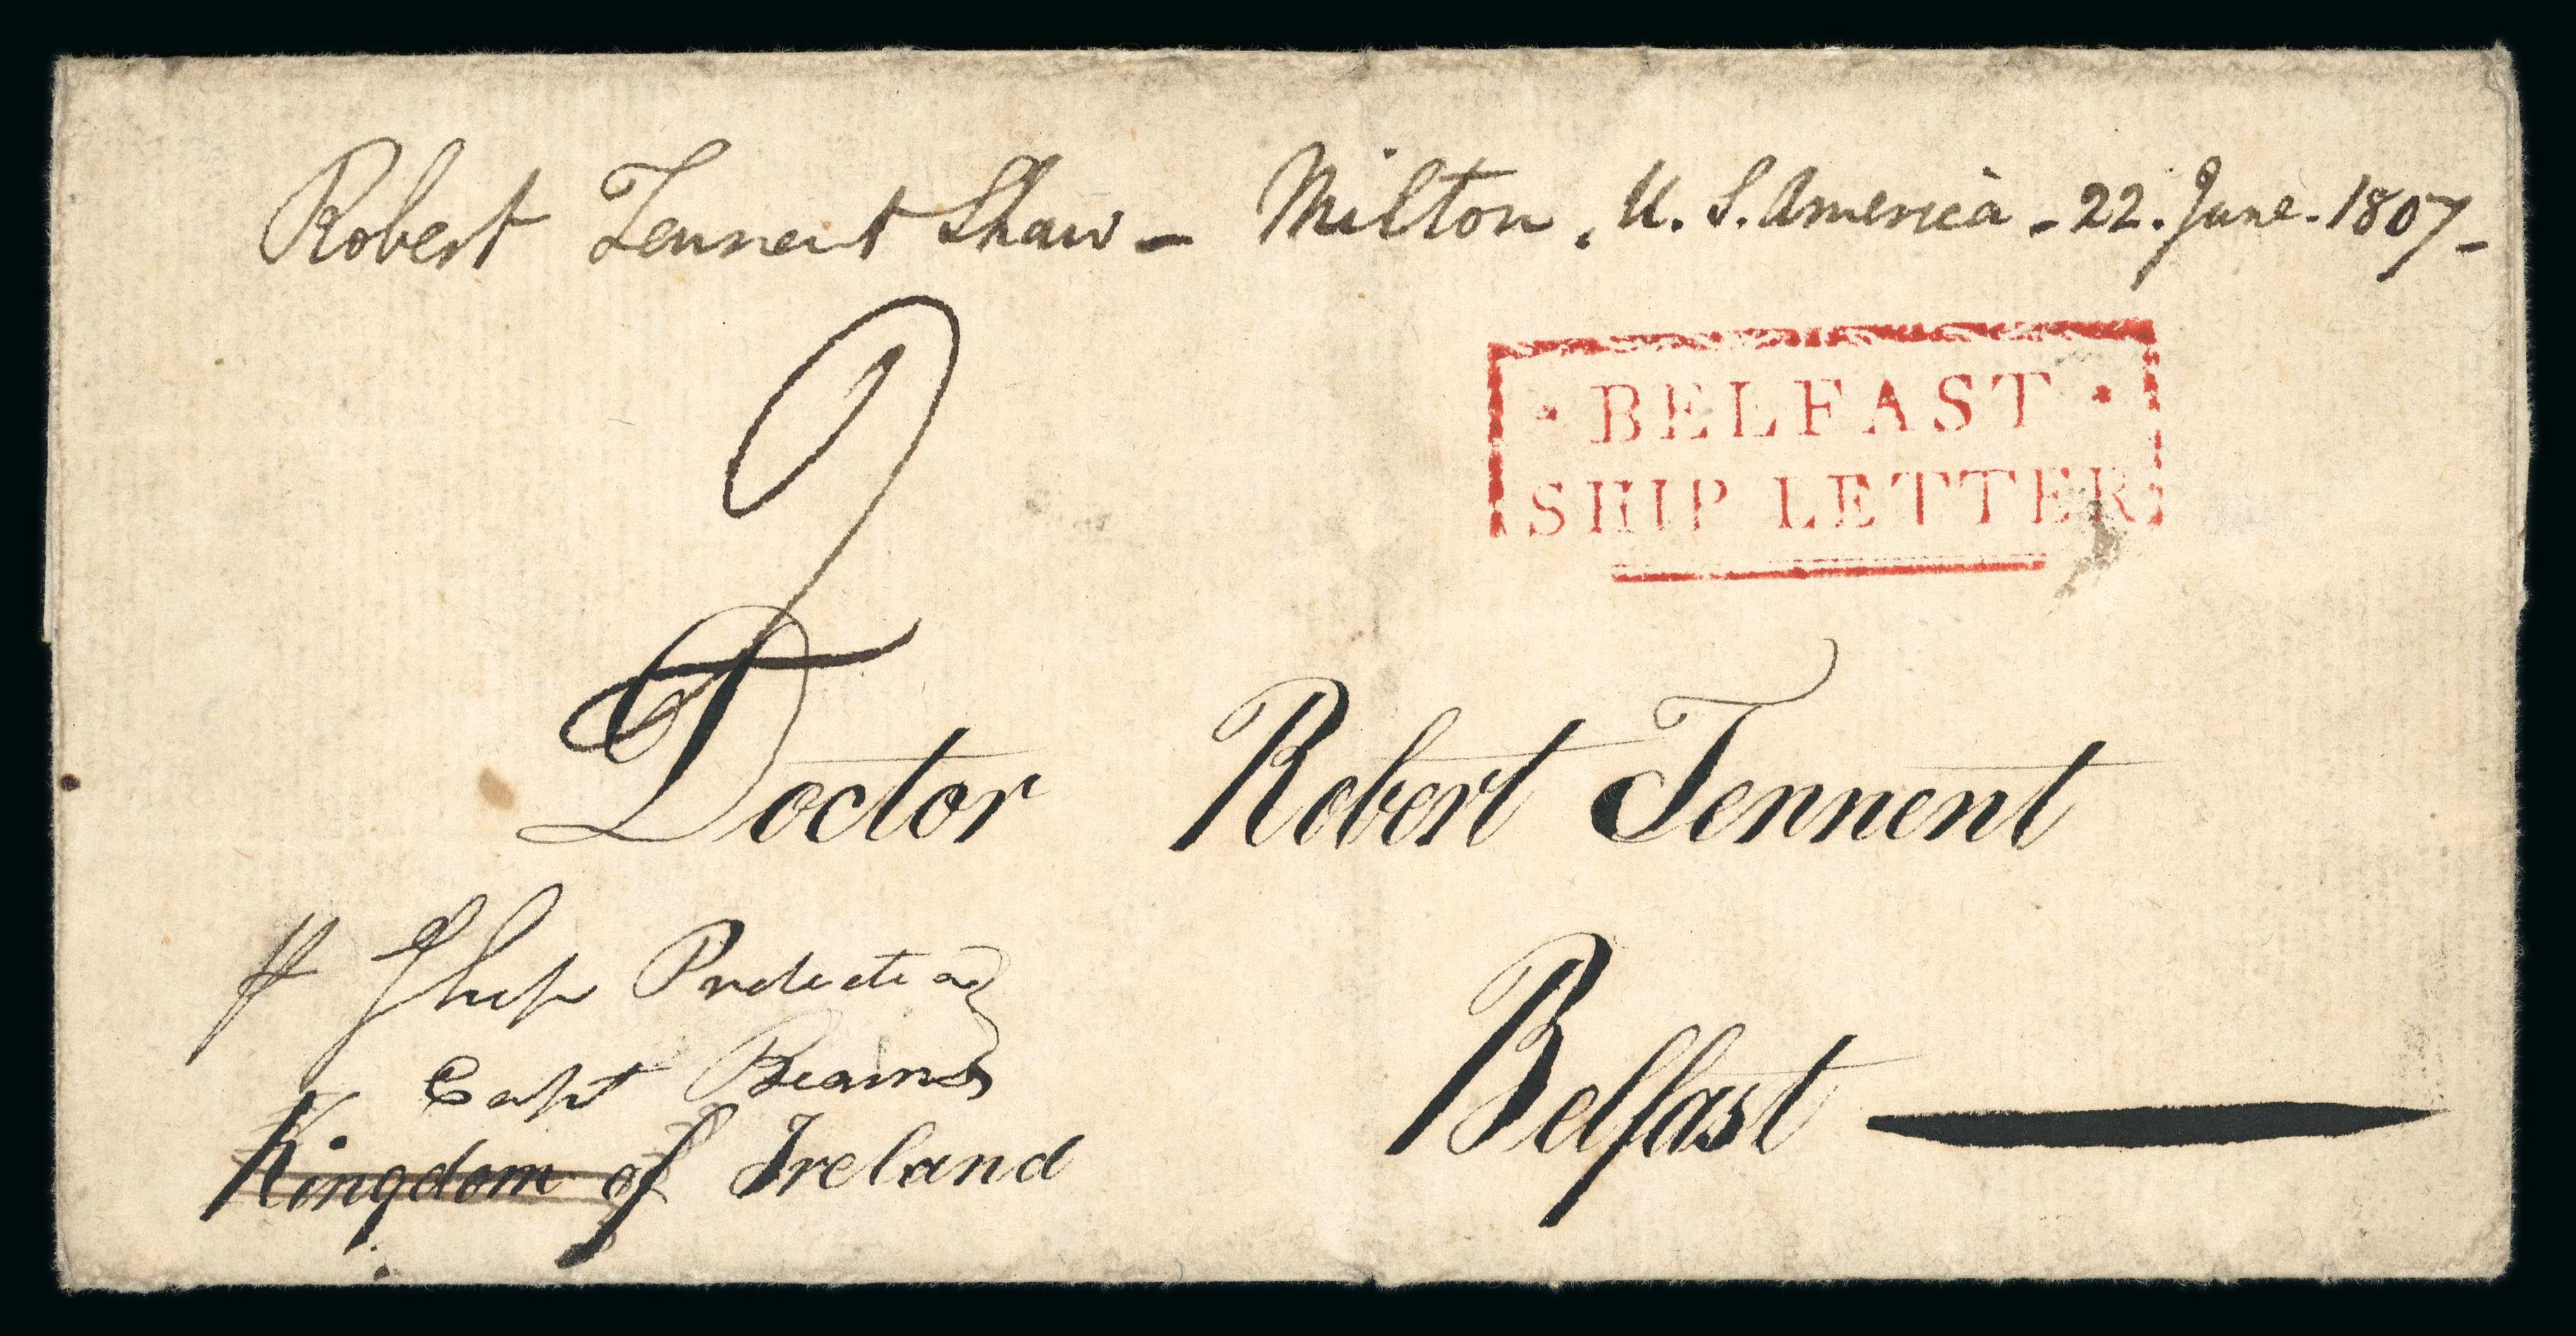 Robert Tennent Shaw - Milton. U. S. America - 22. June. 1807 -
2
· BELFAST ·
SHIP LETTER
Doctor Robert Tennent
Ship Protection
Capt
Belfast
Kingdom of Ireland